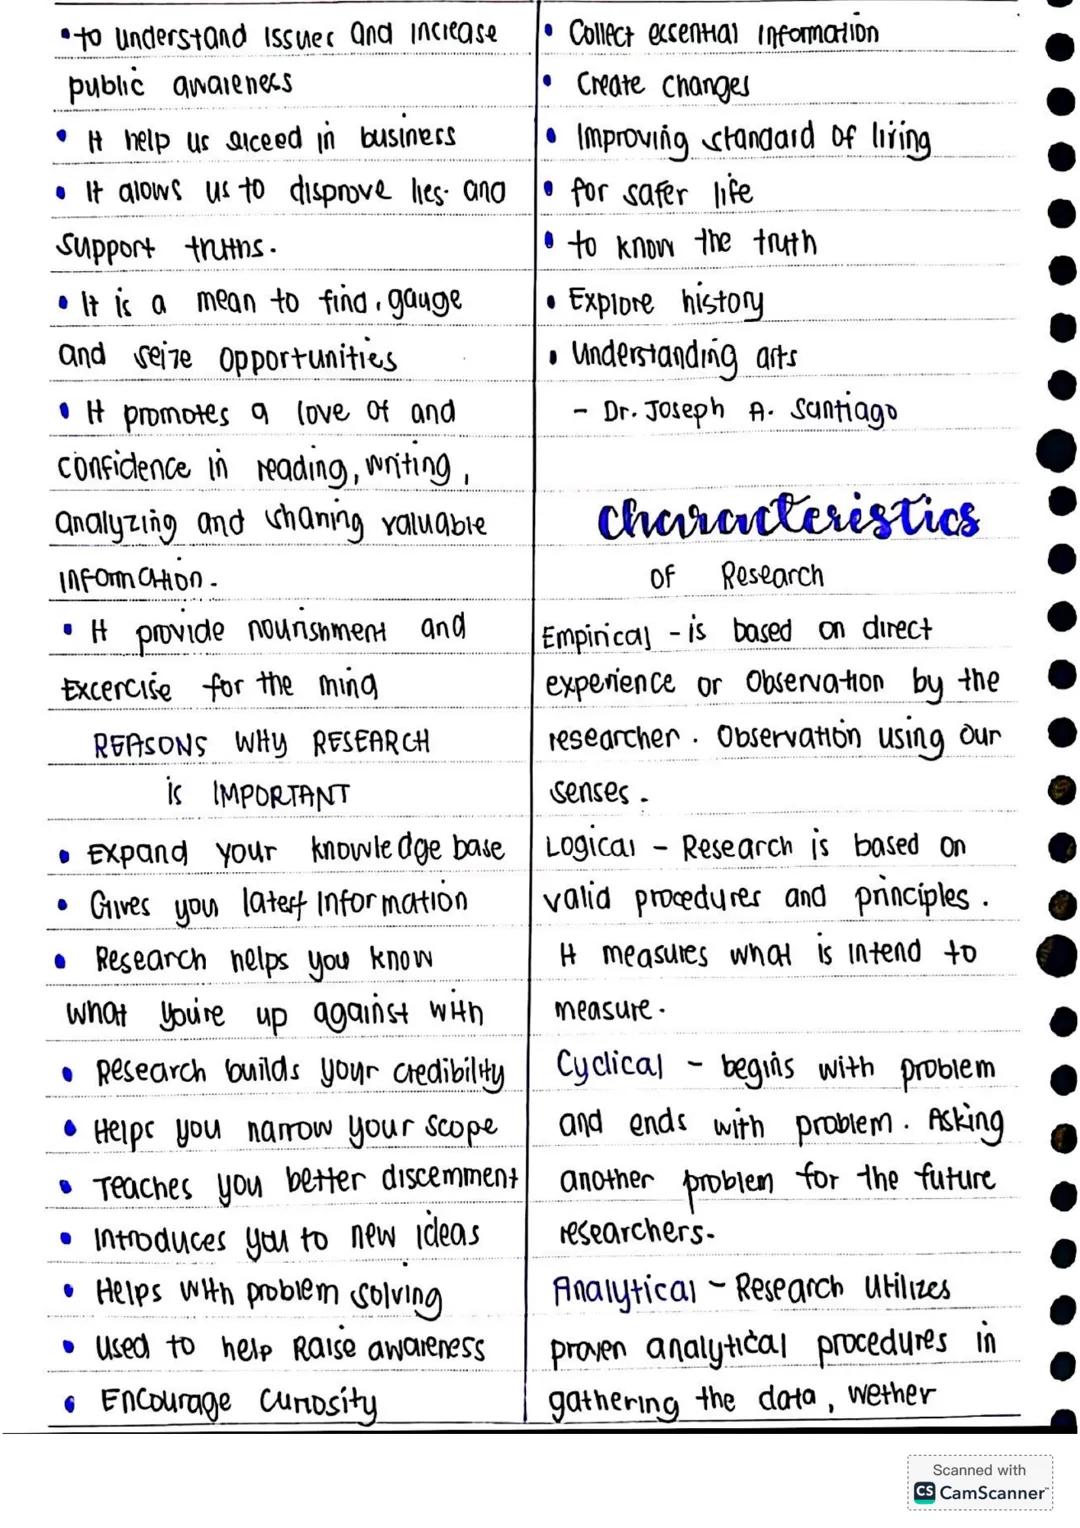 • to understand issues and increase
public awareness
• It help us suceed in business
• It alows us to disprove lies and
support truths.
• It is a mean to find, gauge
and seize opportunities
• It promotes a love of and
confidence in reading, writing,
analyzing and sharing valuable
information.
• It provide nourishment and
Excercise for the mind
REASONS WHY RESEARCH
is IMPORTANT
• Expand your knowledge base
• Gives you latest Information
• Research helps you know
what you're up against with
• Research builds your credibility
• Helps you narrow your scope
• Teaches you better discernment
• Introduces you to new ideas
• Helps with problem solving
• Used to help Raise awareness
• Encourage Curiosity
• Collect essential information
• Create changes
• Improving standard of living
• for safer life
• to know the truth
• Explore history
• Understanding arts
- Dr. Joseph A. Santiago
Characteristics
of Research
Empirical - is based on direct
experience or Observation by the
researcher. Observation using our
senses.
Logical - Research is based on
valid procedures and principles.
It measures what is intend to
measure.
Cyclical - begins with problem
and ends with problem. Asking
another problem for the future
researchers.
Analytical - Research Utilizes
proven analytical procedures in
gathering the data, wether
Scanned with
CS CamScanner